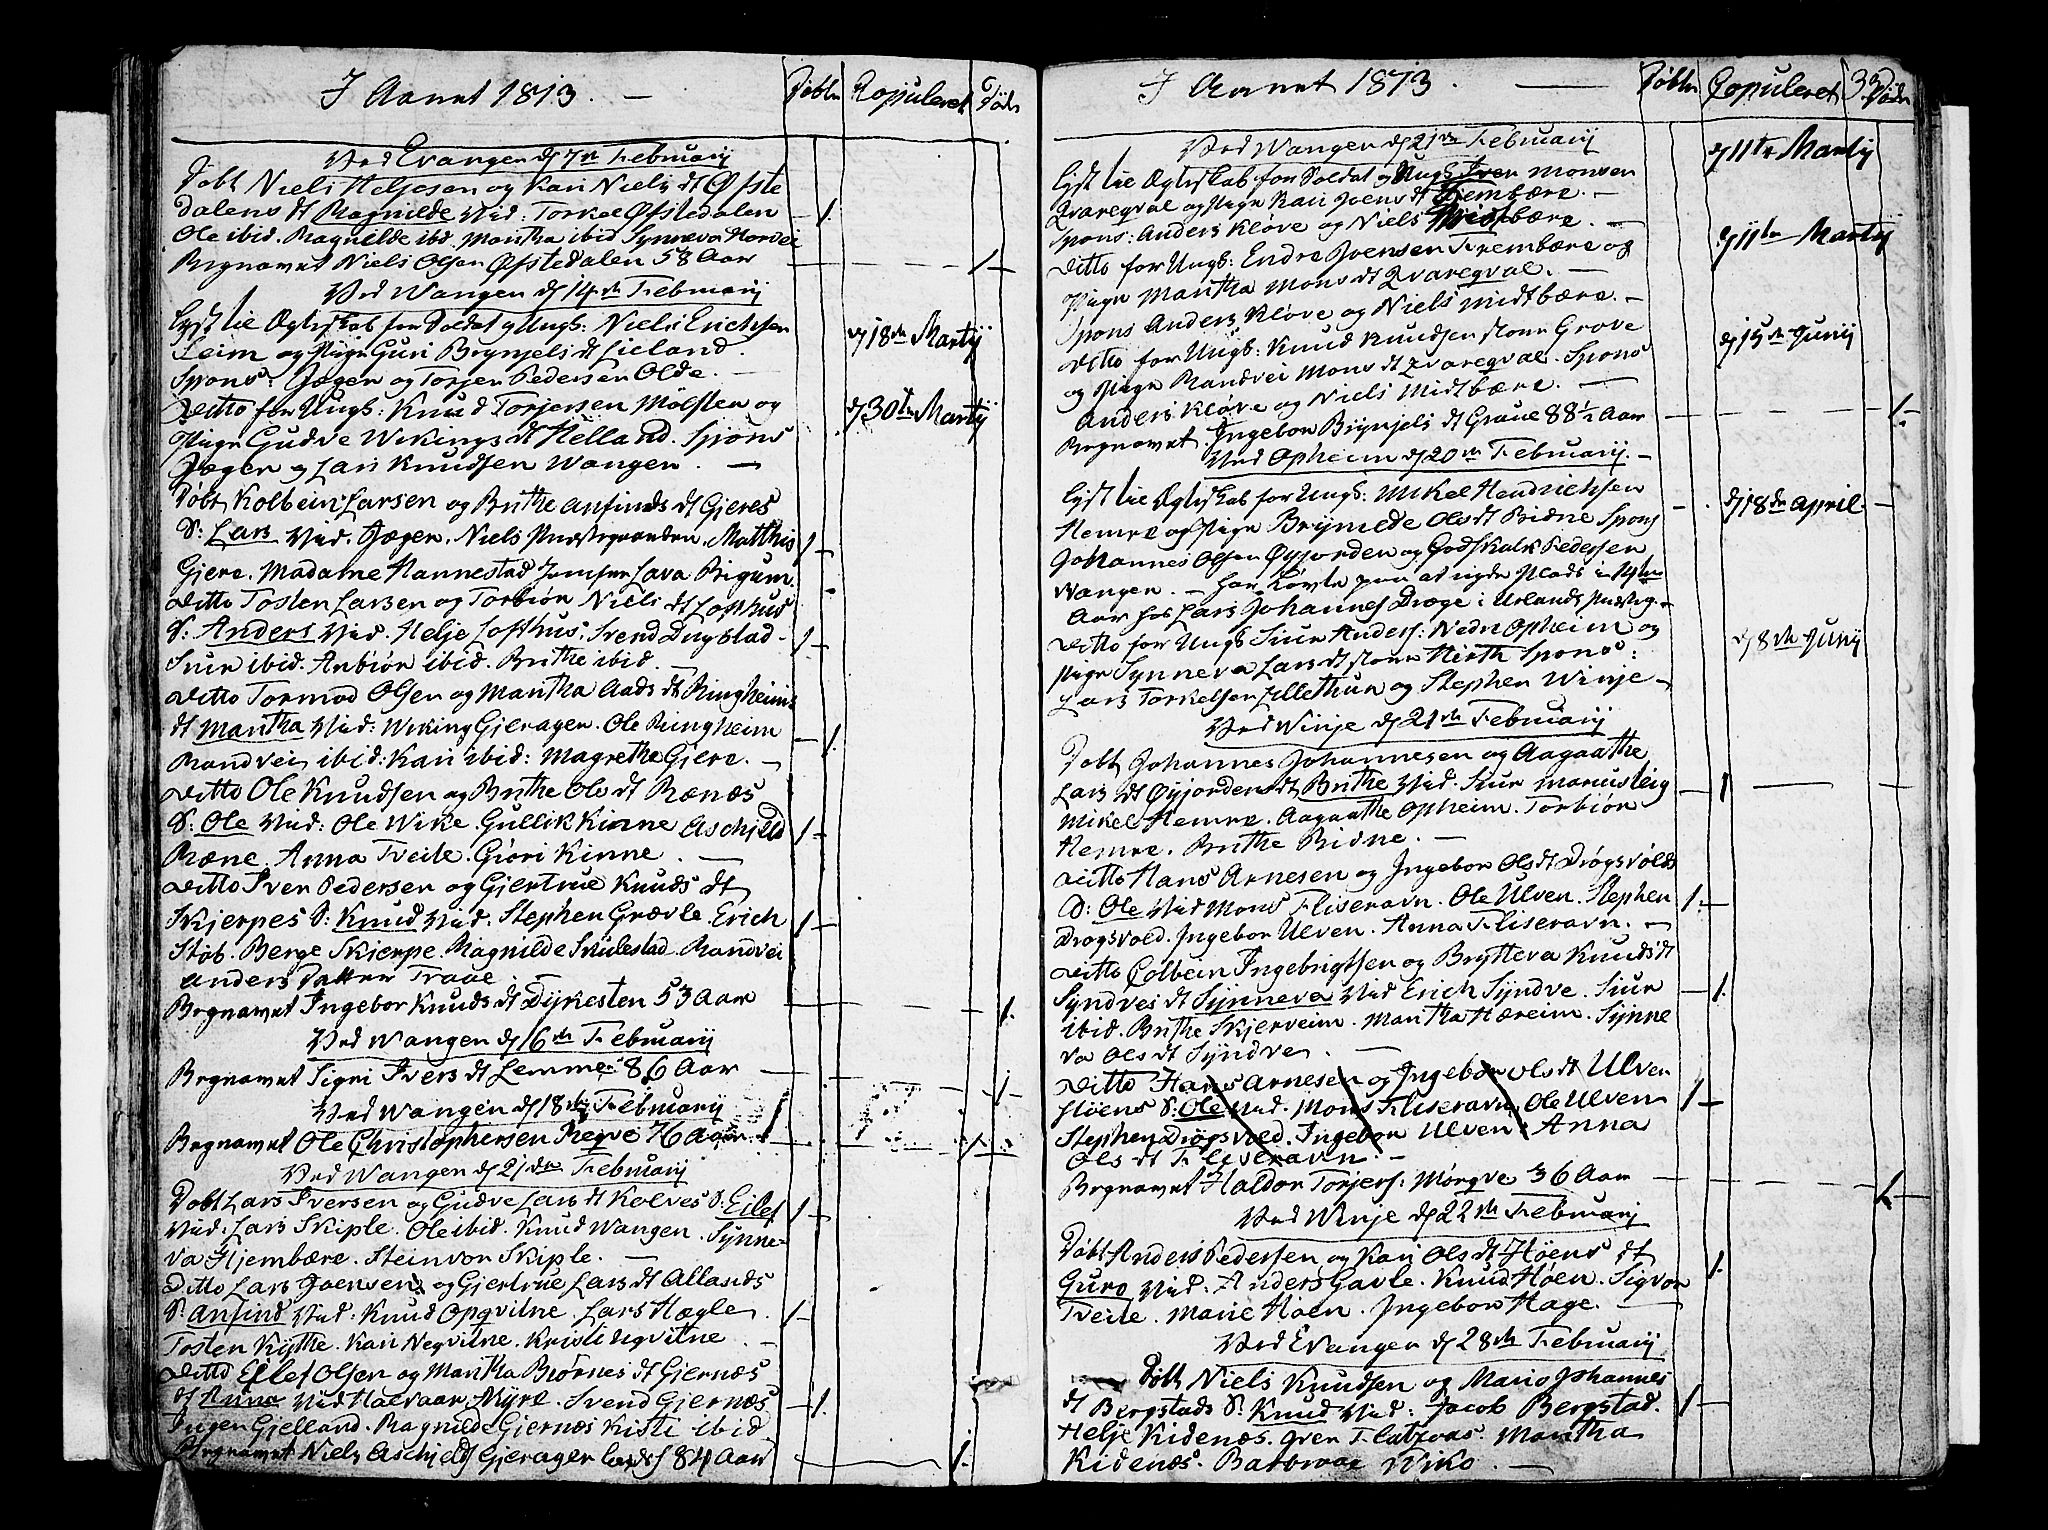 I Aaret 1813. — Døbte Copuleret Døde
Ved Evangen d 7de Februarij
Døbt Niels Heljesen og Kari Niels dt Øfste
dalens dt Magnilde Vid: Torkel Øfstedalen 1.
Ole ibid. Magnilde ibd. Martha ibid Synneva Horvei
Begravet Niels Olsen Øfstedalen 58 Aar 1
Ved Wangen d 14de Februarij
Lyst til Ægteskab for Soldat og Ungk: Niels Erichsen
Leim og Pige Guri Brynjels dt Lieland. d 18de Martij
Spons: Jæger og Torjer Pedersen Olde.
Ditto for Ungk: Knud Torjersen Mølster og d 30te Martij
Pige Gudve Wikings dt Helland. Spons
Jæger og Lars Knudsen Wangen. —
Døbt Kolbein Larsen og Brithe Anfinds dt Gjeres
S: Lars Vid. Jæger. Niels Præstegaarden. Matthis 1
Gjere. Madame Hannestad Jomfru Lava Brigum.
Ditto Tosten Larsen og Torbiør Niels dt Lofthus
S: Anders Vid. Helje Lofthus. Svend Dugstad. 1
Siur ibid. Anbiør ibid. Brithe ibid.
Ditto Tormod Olsen og Martha Aads dt Ringheims
dt Martha Vid: Wiking Gjeragen. Ole Ringheim 1.
Randvei ibid: Kari ibid: Magrethe Gjere.
Ditto Ole Knudsen og Brithe Ols dt Rænæs
S: Ole Vid: Ole Wike. Gullik Kinne Aschjeld 1
Ræne. Anna Tveite. Giøri Kinne.
Ditto Iver Pedersen og Gjertrue Knuds dt
Skjerpes S: Knud Vid: Stephen Grævle. Erich 1
Støb. Berge Skjerpe. Magnilde Skulestad. Randvei
Anders Datter Traae.
Begravet Ingebor Knuds dt Dykesten 53 Aar 1.
Ved Wangen d 16de Februarij
Begravet Sigri Ivers dt Lemme 86 Aar 1
Ved Wangen d 18de Februarij
Begravet Ole Christophersen Regve Aar 1
Ved Wangen d 21de Februarij
Døbt Lars Iversen og Gudve Lars dt Kolves S: Eilef 1
Vid: Lars Skiple. Ole ibid. Knud Wangen. Synne-
va Hjembære. Steinvor Skiple. —
Ditto Lars Joensen og Gjertrue Lars dt Allands
S: Anfind Vid: Knud Opqvitne. Lars Hægle 1
Tosten Kythe. Kari Negvitne. Kristi Ugvitne
Ditto Eilef Olsen og Martha Biørnes dt Gjernæs
dt Anna Vid Halvaar Myre. Svend Gjernæs 1.
Inger Gjelland. Magnilde Gjernæs Kristi ibid
Begravet Niels Aschjelds Gjerager 84 Aar 1.
I Aaret 1813. — Døbte Copuleret 33 Døde
Ved Wangen d 21de Februarij
Lyst til Ægteskab for Soldat og Ungk Iver Monsen d 11te Martij
Qvaregval og Pige Kari Joens dt Hjembære. —
Spons: Anders Kløve og Niels Midtbære.
Ditto for Ungk: Endre Joensen Hjembære og d 11te Martij
Pige Martha Mons dt Qvaregval. —
Spons Anders Kløve og Niels Midtbære. —
Ditto for Ungk: Knud Knudsen store Grove d 15de Junij
og Pige Randvei Mons dt Qvaregval. Spons
Anders Kløve og Niels Midtbære. —
Begravet Ingebor Brynjels dt Graue 88½ Aar 1.
Ved Opheim d 20de Februarij. —
Lyst til Ægteskab for Ungk: Mikel Hendrichsen d 18de April
Hemre og Pige Brynilde Ols dt Bidne Spons
Johannes Olsen Øyjorden og Godskalk Pedersen
Wangen. — har Løvte paa at nyde Plads i 14ten
Aar hos Lars Johannes Drøge i Urlands Præsteg.
Ditto for Ungk Siur Anders: Nedre Opheim og d 8de Junij
Pige Synneva Lars dt store Hirth Spons:
Lars Torkelsen Tillethun og Stephen Winje
Ved Winje d 21de Februarij
Døbt Johannes Johannesen og Aagaathe
Lars dt Øyjordens dt Brithe Vid. Siur Marcusteig 1
Mikel Hemre. Aagaathe Opheim. Torbiør
Hemre. Brithe Bidne. —
Ditto Hans Arnesen og Ingebor Ols dt Drøgsvolds
S: Ole Vid Mons Fliseravn. Ole Ulven. Stephen 1.
Drøgsvold. Ingebor Ulven. Anna Fliseravn. —
Ditto Colbein Ingebrigtsen og Brytteva Knuds dt
Syndves dt Synneva Vid Erich Syndve. Siur 1.
ibid. Brithe Skjerveim. Martha Hæreim. Synne
va Ols dt Syndve.
Ditto Hans Arnesen og Ingebor Ols dt Ulven
støens S: Ole Vid. Mons Fliseravn, Ole Ulven 1
Stephen Drøgsvold. Ingebor Ulven. Anna
Ols dt Fliseravn.
Begravet Haldor Torjers: Mørqve 36 Aar 1
Ved Winje d 22de Februarij
Døbt Anders Pedersen og Kari Ols dt Høens dt 1.
Guro Vid. Anders Gavle. Knud Høen. Sigvor
Tveite. Marie Høen. Ingebor Hage.
Ved Evangen d 28de Februarij
Døbt Niels Knudsen og Mario Johannes
dt Bergstads S: Knud Vid: Jacob Bergstad. 1
Helje Kidenæs. Iver Flatqvas. Martha
Kidenæs. Barbroe Wiko. —